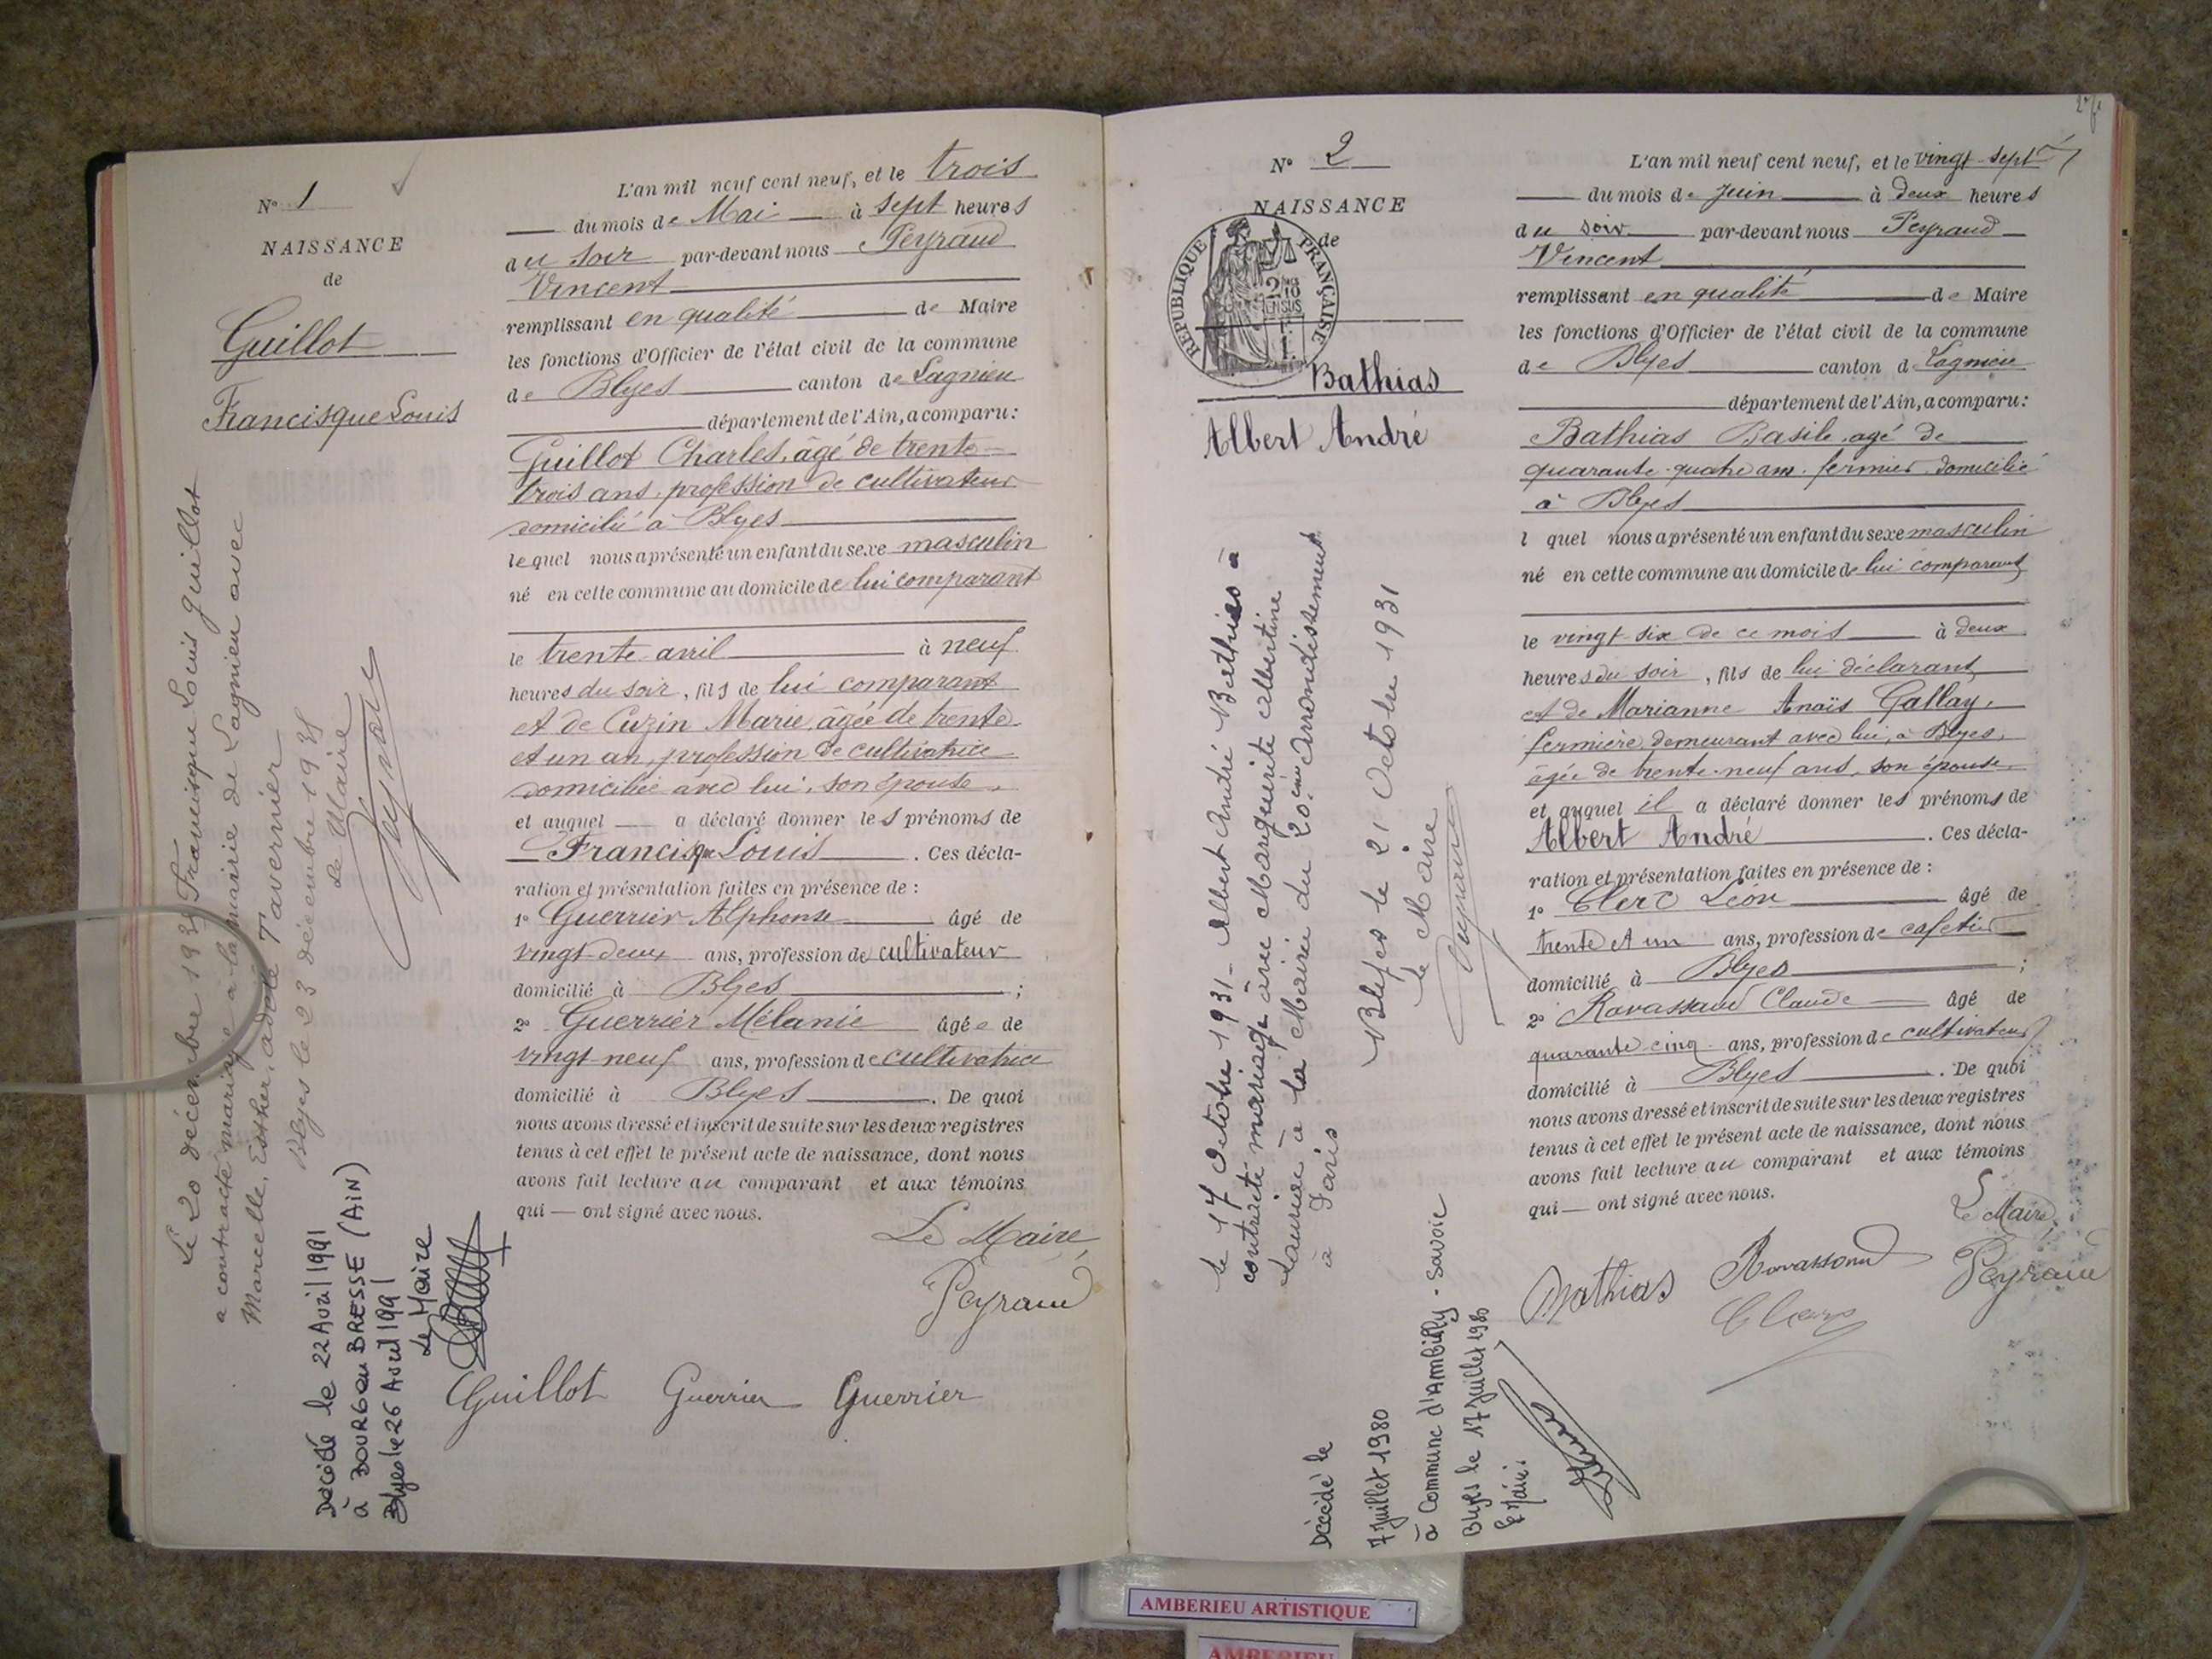 N° 1
NAISSANCE
de
Guillot
Francisque Louis
L'an mil neuf cent neuf, et le trois
du mois de Mai à sept heures
du soir par-devant nous Peyraud
Vincent
remplissant en qualité de Maire
les fonctions d'Officier de l'état civil de la commune
de Blyes canton de Lagnieu
département de l'Ain, a comparu :
Guillot Charles, âgé de trente-
trois ans, profession de cultivateur
domicilié à Blyes
lequel nous a présenté un enfant du sexe masculin
né en cette commune au domicile de lui comparant
le trente avril à neuf
heures du soir, fils de lui comparant
et de Cuzin Marie, âgée de trente
et un an, profession de cultivatrice
domiciliée avec lui, son épouse,
et auquel a déclaré donner les prénoms de
Francisque Louis. Ces décla-
ration et présentation faites en présence de :
1° Guerrier Alphonse âgé de
vingt-deux ans, profession de cultivateur
domicilié à Blyes ;
2° Guerrier Mélanie âgée de
vingt neuf ans, profession de cultivatrice
domicilié à Blyes. De quoi
nous avons dressé et inscrit de suite sur les deux registres
tenus à cet effet le présent acte de naissance, dont nous
avons fait lecture au comparant et aux témoins
qui — ont signé avec nous.
Le Maire,
Peyraud
Guillot Guerrier Guerrier
Le 20 décembre Francisque Louis Guillot
a contracté mariage à la mairie de Lagnieu avec
Marcelle, Esther, Tavernier
Blyes le 23 décembre
Le Maire
Décédé le 22 Avril 1991
à BOURG en BRESSE (AiN)
Blyes le 26 Avril 1991
Le Maire
N° 2
NAISSANCE
de
REPUBLIQUE FRANÇAISE
Bathias
Albert André
L'an mil neuf cent neuf, et le vingt-sept
du mois de juin à deux heures
du soir par-devant nous Peyraud
Vincent
remplissant en qualité de Maire
les fonctions d'Officier de l'état civil de la commune
de Blyes canton de Lagnieu
département de l'Ain, a comparu :
Bathias Basile, agé de
quarante-quatre ans, fermier, domicilié
à Blyes
l quel nous a présenté un enfant du sexe masculin
né en cette commune au domicile de lui comparant
le vingt-six de ce mois à deux
heures du soir, fils de lui déclarant
et de Marianne Anaïs Gallay,
fermière demeurant avec lui, à Blyes,
âgée de trente-neuf ans, son épouse
et auquel il a déclaré donner les prénoms de
Albert André. Ces décla-
ration et présentation faites en présence de :
1° Clerc Léon âgé de
trente et un ans, profession de cafetier
domicilié à Blyes ;
2° Ravassaud Claude âgé de
quarante cinq ans, profession de cultivateur
domicilié à Blyes. De quoi
nous avons dressé et inscrit de suite sur les deux registres
tenus à cet effet le présent acte de naissance, dont nous
avons fait lecture au comparant et aux témoins
qui — ont signé avec nous.
Le Maire,
Bathias Peyraud
Clerc
le 17 Octobre 1931 - Albert André Bathias à
contracté mariage avec Marguerite Albertine
à la Mairie du 20ème arrondissement
à Paris
Blyes le 21 Octobre 1931
le Maire
Décédé le
7 juillet 1980
à Commune d'Ambilly - Savoie
Blyes le 17 juillet 1980
le Maire :
AMBERIEU ARTISTIQUE
AMBERIEU